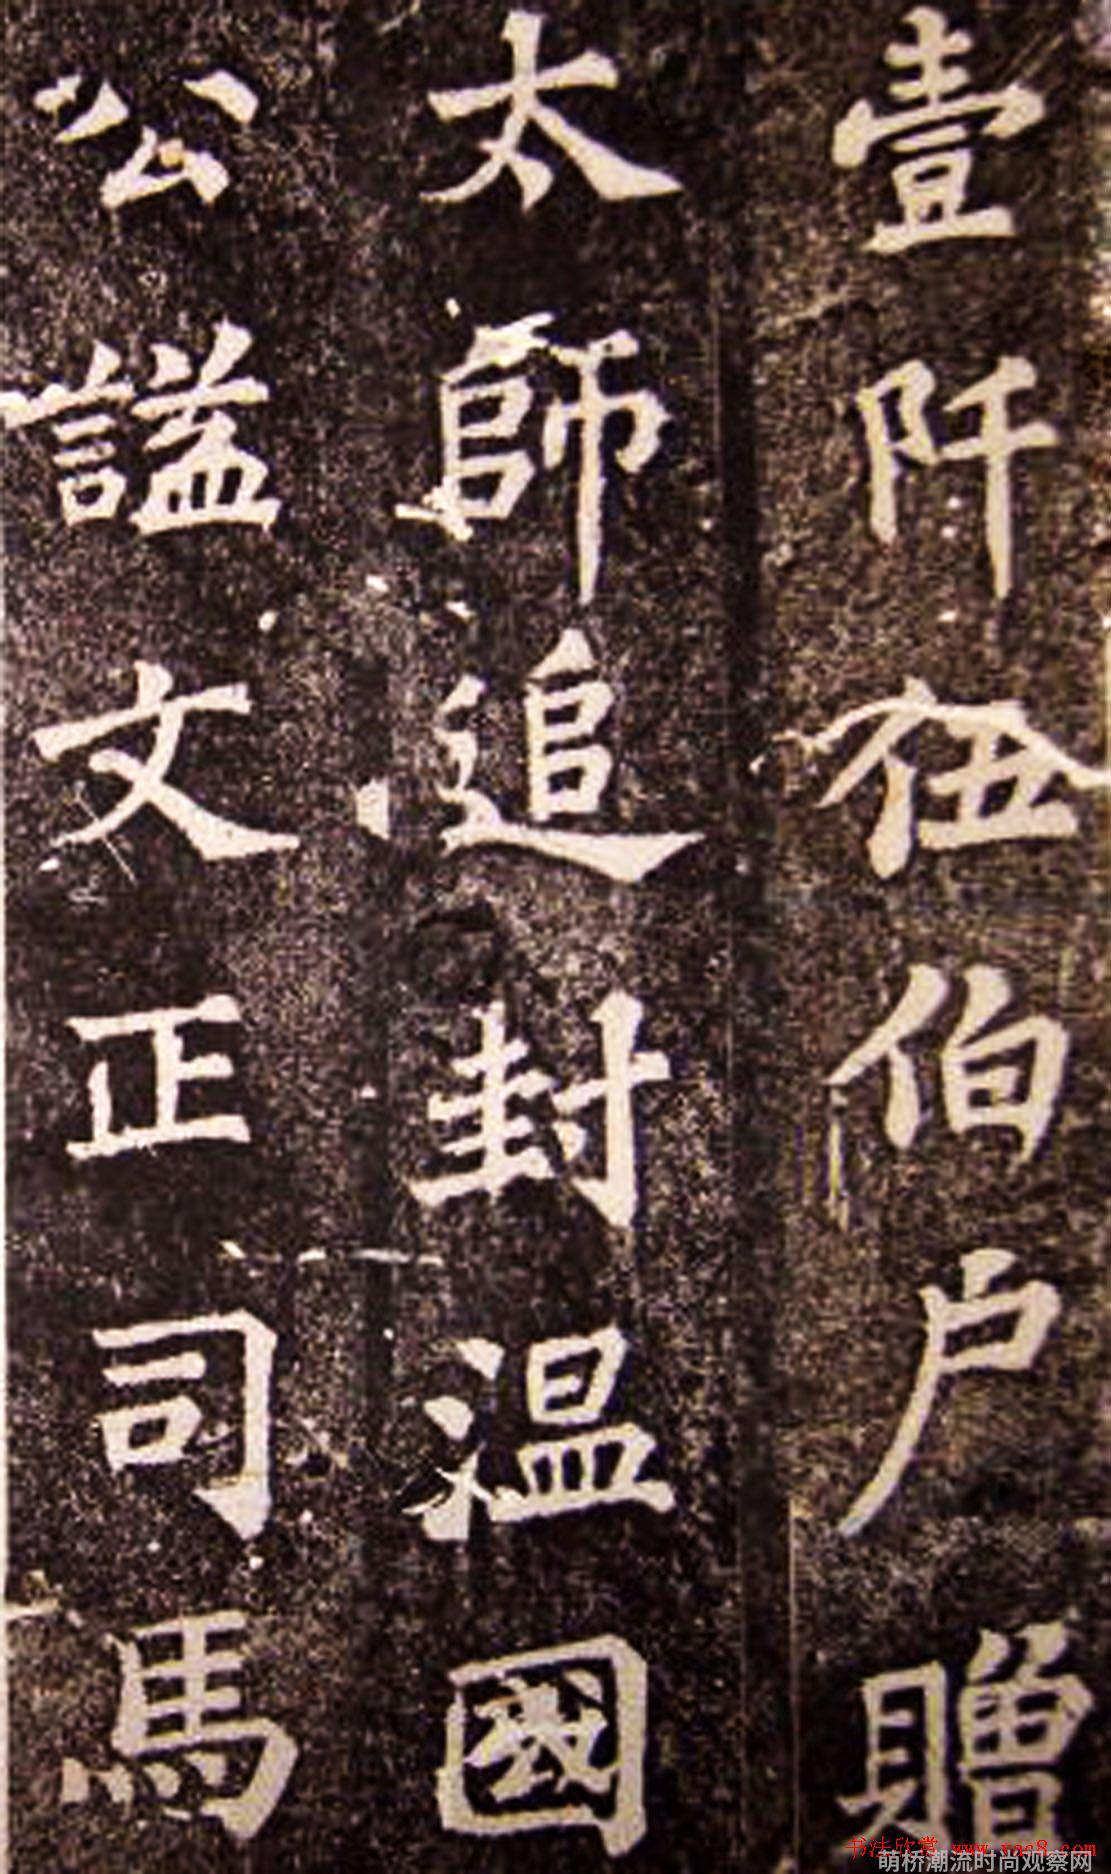 壹阡伍伯户贈
太師追封温國
公謚文正司馬
书法欣赏 www.yac8.com
萌桥潮流时尚观察网